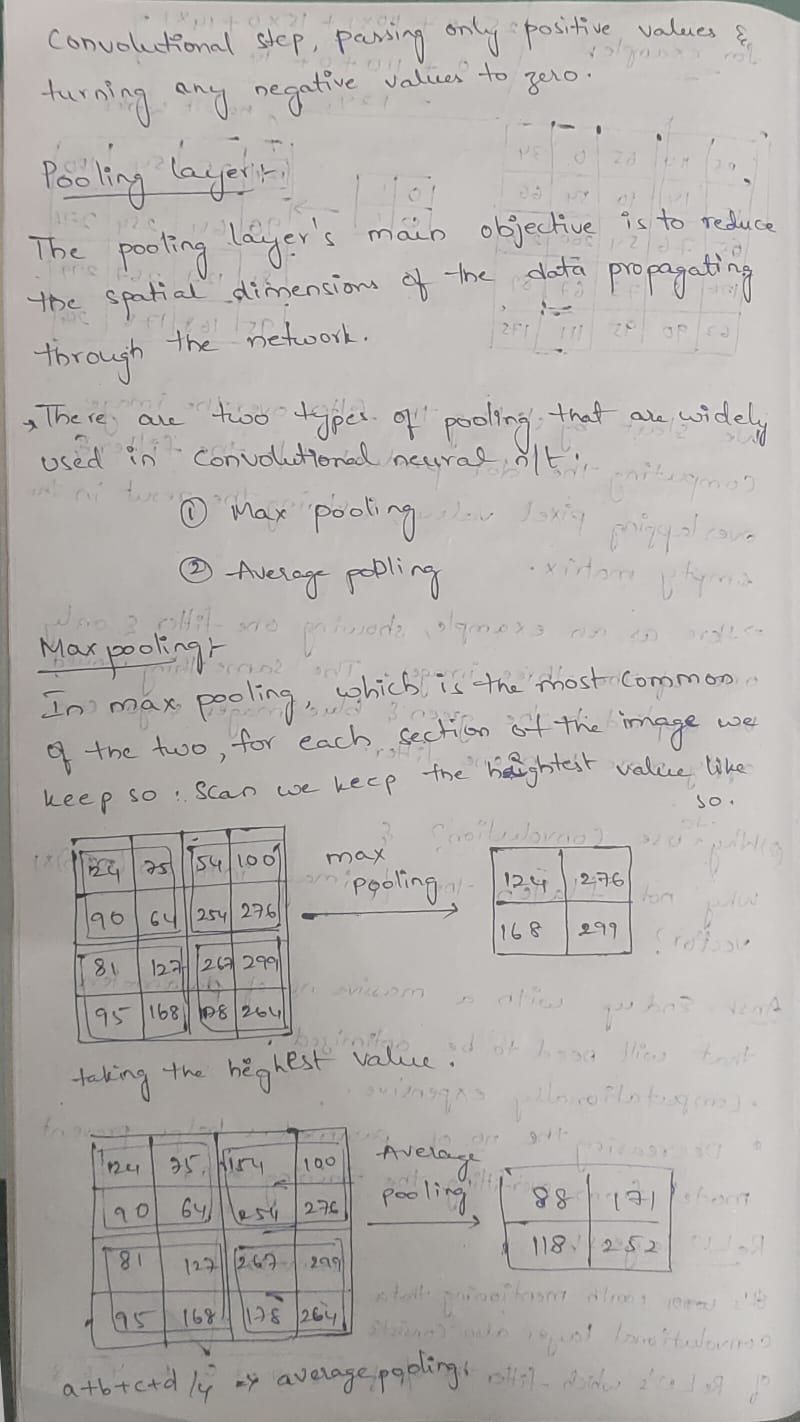 Convolutional step, passing only positive values &
turning any negative values to zero.
Pooling layer:-
The pooling layer's main objective is to reduce
the spatial dimensions of the data propagating
through the network.
→ There are two types of pooling that are widely
used in convolutional neural n/t.
① Max pooling
② Average pooling
Max pooling:-
In max pooling, which is the most common
of the two, for each section of the image we
keep so : scan we keep the heightest value like
so.
124 75 154 100
90 64 254 276
81 127 267 299
95 168 178 264
max
pooling
124 276
168 299
taking the heighest value.
124 75 154 100
90 64 254 276
81 127 267 299
95 168 178 264
Average
pooling
88 171
118 252
a+b+c+d /4 => average pooling